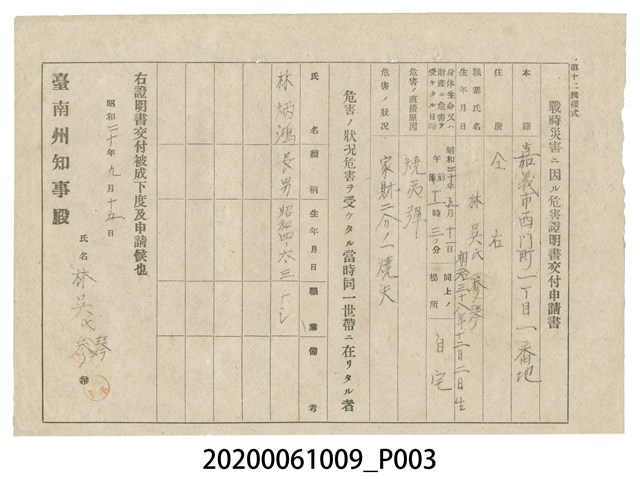 第十二號樣式
戰時災害ニ因ル危害證明書交付申請書
本籍 嘉義市西門町一丁目一番地
住所 仝右
職業氏名 林吳氏參琴
生年月日 明治三十八年十二月二日生
身体生命又ハ財產ニ危害ヲ受ケタル日時 昭和二十年五月十一日 午前十一時三〇分 同上ノ場所 自宅
危害ノ直接原因 燒夷彈
危害ノ狀況 家財二分ノ一燒失
危害ノ狀況危害ヲ受ケタル當時同一世帶ニ在リタル者
氏名 續柄 生年月日 職業 備考
林炳鴻 長男 昭和四、六、三 ナシ
右證明書交付被成下度及申請候也
昭和二十年九月十五日
氏名 林吳氏參琴 ㊞
臺南州知事殿
20200061009_P003